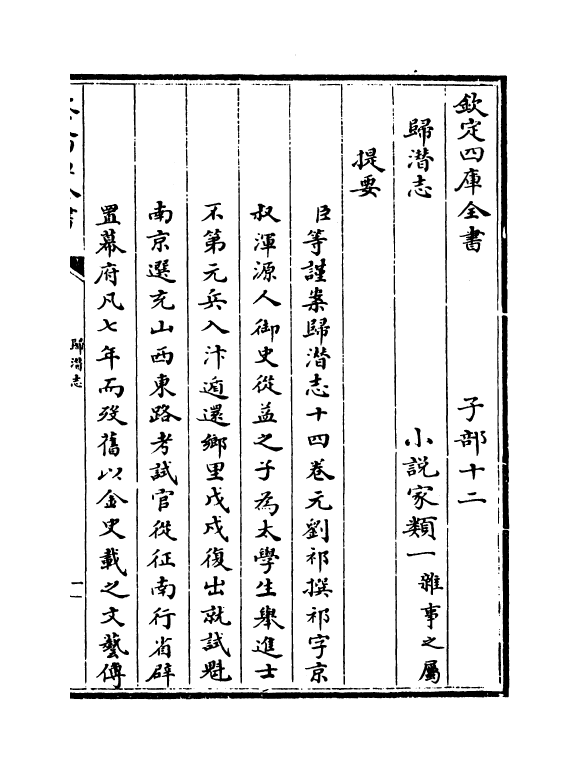 欽定四庫全書 子部十二
歸潛志 小説家類一雜事之屬
提要
臣等謹案歸潛志十四卷元劉祁撰祁字京
叔渾源人御史從益之子為太學生舉進士
不第元兵入汴遁還鄉里戊戌復出就試魁
南京選充山西東路考試官從征南行省辟
置幕府凡七年而歿舊以金史載之文藝傳
歸潛志